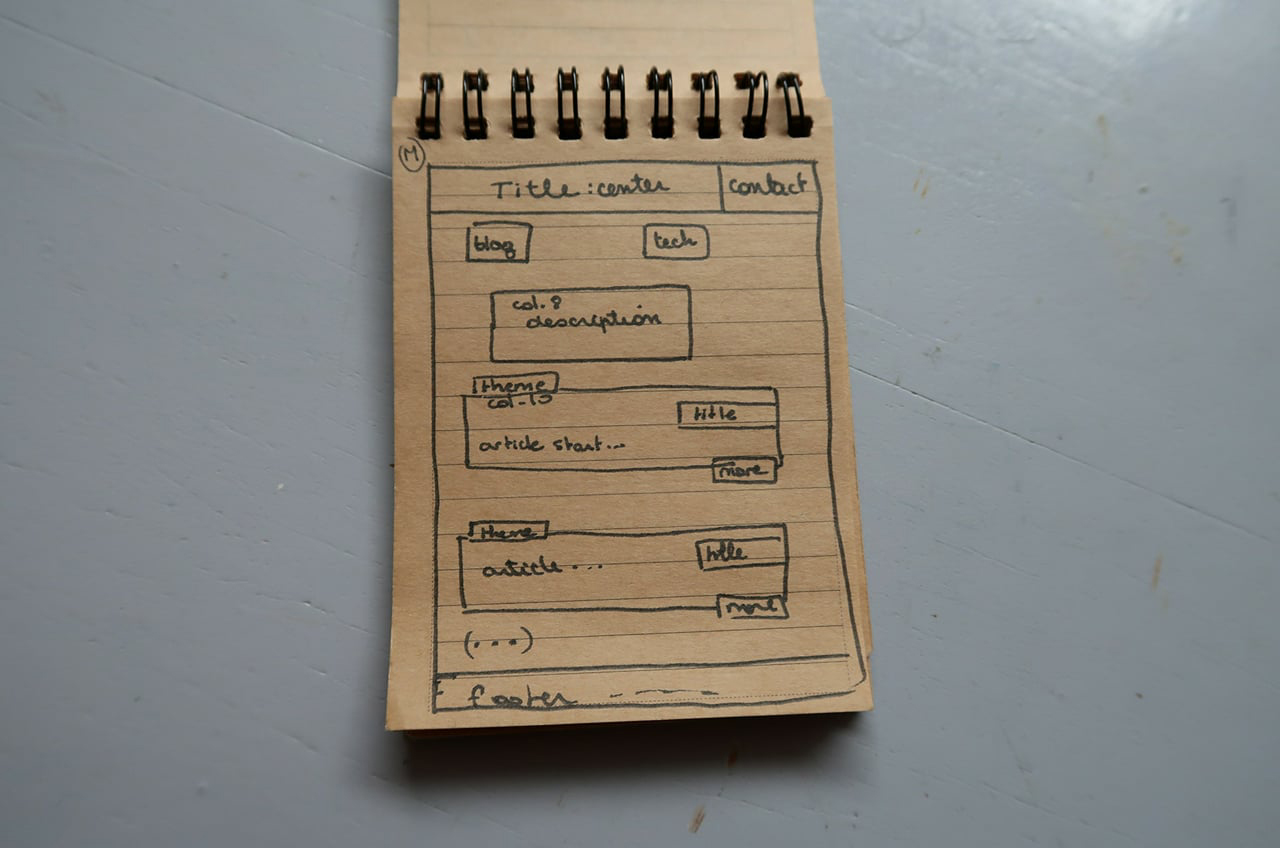 M
Title : center contact
blog tech
col. 8
description
theme
col-10
title
article start...
more
theme
title
article ...
more
(...)
footer